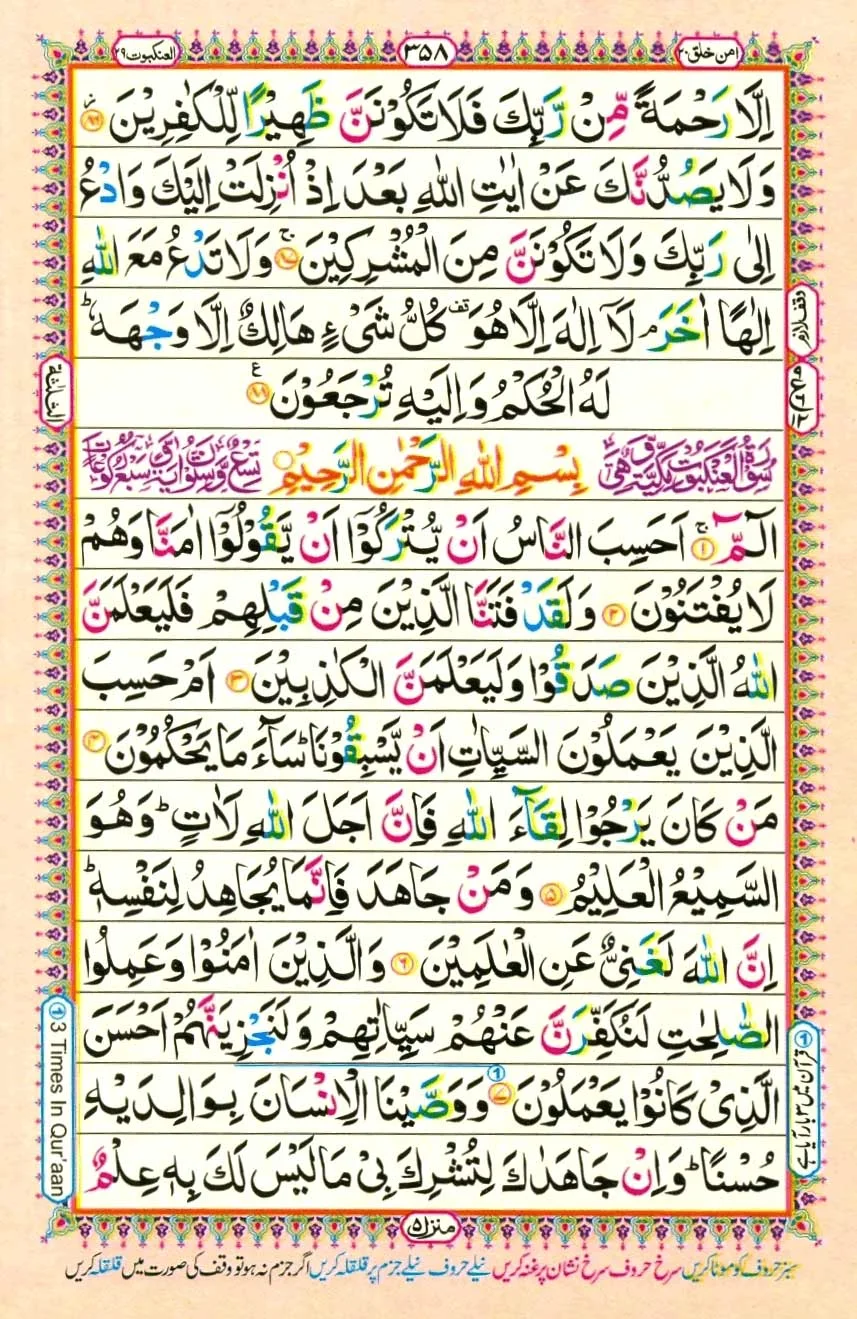 امن خلق ٢٠
٣٥٨
العنكبوت ٢٩
اِلَّا رَحْمَةً مِّنْ رَّبِّكَ فَلَا تَكُوْنَنَّ ظَهِيْرًا لِّلْكٰفِرِيْنَ ۟ؗ ﴿٨٦﴾
وَلَا يَصُدُّنَّكَ عَنْ اٰيٰتِ اللّٰهِ بَعْدَ اِذْ اُنْزِلَتْ اِلَيْكَ وَادْعُ
اِلٰى رَبِّكَ وَلَا تَكُوْنَنَّ مِنَ الْمُشْرِكِيْنَ ۚ ﴿٨٧﴾ وَلَا تَدْعُ مَعَ اللّٰهِ
اِلٰهًا اٰخَرَ ۘ لَاۤ اِلٰهَ اِلَّا هُوَ قف كُلُّ شَیْءٍ هَالِكٌ اِلَّا وَجْهَهٗ ؕ
لَهُ الْحُكْمُ وَاِلَيْهِ تُرْجَعُوْنَ ﴿٨٨﴾ ع
سُوْرَةُ الْعَنْكَبُوْتِ مَكِّيَّةٌ وَّهِیَ بِسْمِ اللّٰهِ الرَّحْمٰنِ الرَّحِيْمِ تِسْعٌ وَّسِتُّوْنَ اٰيَةً وَّسَبْعُ رُكُوْعَاتٍ
الٓمّٓ ۚ ﴿١﴾ اَحَسِبَ النَّاسُ اَنْ يُّتْرَكُوْۤا اَنْ يَّقُوْلُوْۤا اٰمَنَّا وَهُمْ
لَا يُفْتَنُوْنَ ﴿٢﴾ وَلَقَدْ فَتَنَّا الَّذِيْنَ مِنْ قَبْلِهِمْ فَلَيَعْلَمَنَّ
اللّٰهُ الَّذِيْنَ صَدَقُوْا وَلَيَعْلَمَنَّ الْكٰذِبِيْنَ ﴿٣﴾ اَمْ حَسِبَ
الَّذِيْنَ يَعْمَلُوْنَ السَّيِّاٰتِ اَنْ يَّسْبِقُوْنَا ؕ سَآءَ مَا يَحْكُمُوْنَ ﴿٤﴾
مَنْ كَانَ يَرْجُوْا لِقَآءَ اللّٰهِ فَاِنَّ اَجَلَ اللّٰهِ لَاٰتٍ ؕ وَهُوَ
السَّمِيْعُ الْعَلِيْمُ ﴿٥﴾ وَمَنْ جَاهَدَ فَاِنَّمَا يُجَاهِدُ لِنَفْسِهٖ ؕ
اِنَّ اللّٰهَ لَغَنِیٌّ عَنِ الْعٰلَمِيْنَ ﴿٦﴾ وَالَّذِيْنَ اٰمَنُوْا وَعَمِلُوا
الصّٰلِحٰتِ لَنُكَفِّرَنَّ عَنْهُمْ سَيِّاٰتِهِمْ وَلَنَجْزِيَنَّهُمْ اَحْسَنَ
الَّذِیْ كَانُوْا يَعْمَلُوْنَ ﴿٧﴾ ① وَوَصَّيْنَا الْاِنْسَانَ بِوَالِدَيْهِ
حُسْنًا ؕ وَاِنْ جَاهَدٰكَ لِتُشْرِكَ بِیْ مَا لَيْسَ لَكَ بِهٖ عِلْمٌ
وقف لازم
الثلثة
① قرآن میں ۳ بار آیا ہے
① 3 Times In Qur'aan
منزل ۵
سبز حروف کو موٹا کریں سرخ حروف سرخ نشان پر غنہ کریں نیلے حروف نیلے جزم پر قلقلہ کریں اگر جزم نہ ہو تو وقف کی صورت میں قلقلہ کریں